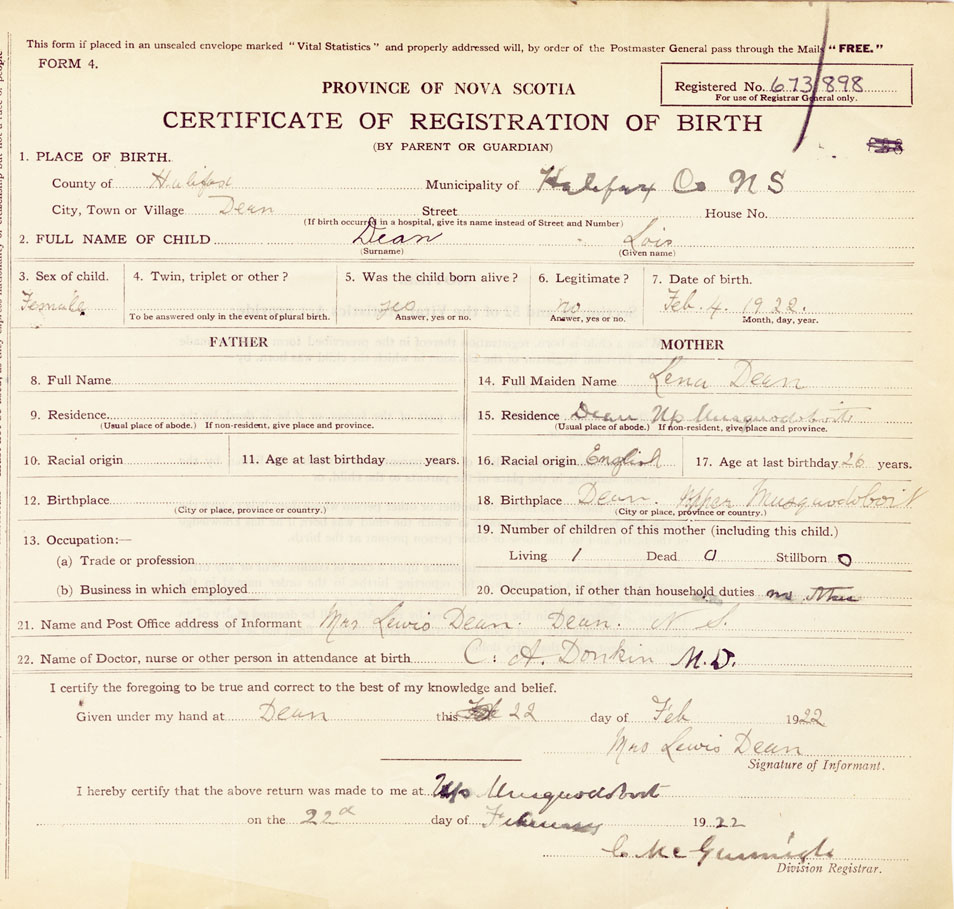 This form if placed in an unsealed envelope marked "Vital Statistics" and properly addressed will, by order of the Postmaster General pass through the Mails "FREE."
FORM 4.
PROVINCE OF NOVA SCOTIA
Registered No. 673/898
For use of Registrar General only.
CERTIFICATE OF REGISTRATION OF BIRTH
(BY PARENT OR GUARDIAN)
1. PLACE OF BIRTH.
County of Halifax Municipality of Halifax Co N S
City, Town or Village Dean Street House No.
(If birth occurred in a hospital, give its name instead of Street and Number)
2. FULL NAME OF CHILD Dean Lois
(Surname) (Given name)
3. Sex of child. 4. Twin, triplet or other? 5. Was the child born alive? 6. Legitimate? 7. Date of birth.
Female yes no Feb. 4. 1922.
To be answered only in the event of plural birth. Answer, yes or no. Answer, yes or no. Month, day, year.
FATHER MOTHER
8. Full Name 14. Full Maiden Name Lena Dean
9. Residence. 15. Residence Dean Up Musquodoboit
(Usual place of abode.) If non-resident, give place and province. (Usual place of abode.) If non-resident, give place and province.
10. Racial origin 11. Age at last birthday years. 16. Racial origin English 17. Age at last birthday 26 years.
12. Birthplace 18. Birthplace Dean. Upper Musquodoboit
(City or place, province or country.) (City or place, province or country.)
13. Occupation:— 19. Number of children of this mother (including this child.)
(a) Trade or profession Living 1 Dead 0 Stillborn 0
(b) Business in which employed 20. Occupation, if other than household duties no other
21. Name and Post Office address of Informant Mrs Lewis Dean. Dean. N S.
22. Name of Doctor, nurse or other person in attendance at birth C. A. Donkin M.D.
I certify the foregoing to be true and correct to the best of my knowledge and belief.
Given under my hand at Dean this 22 day of Feb 1922
Mrs Lewis Dean
Signature of Informant.
I hereby certify that the above return was made to me at Up Musquodoboit
on the 22d day of February 1922
Division Registrar.